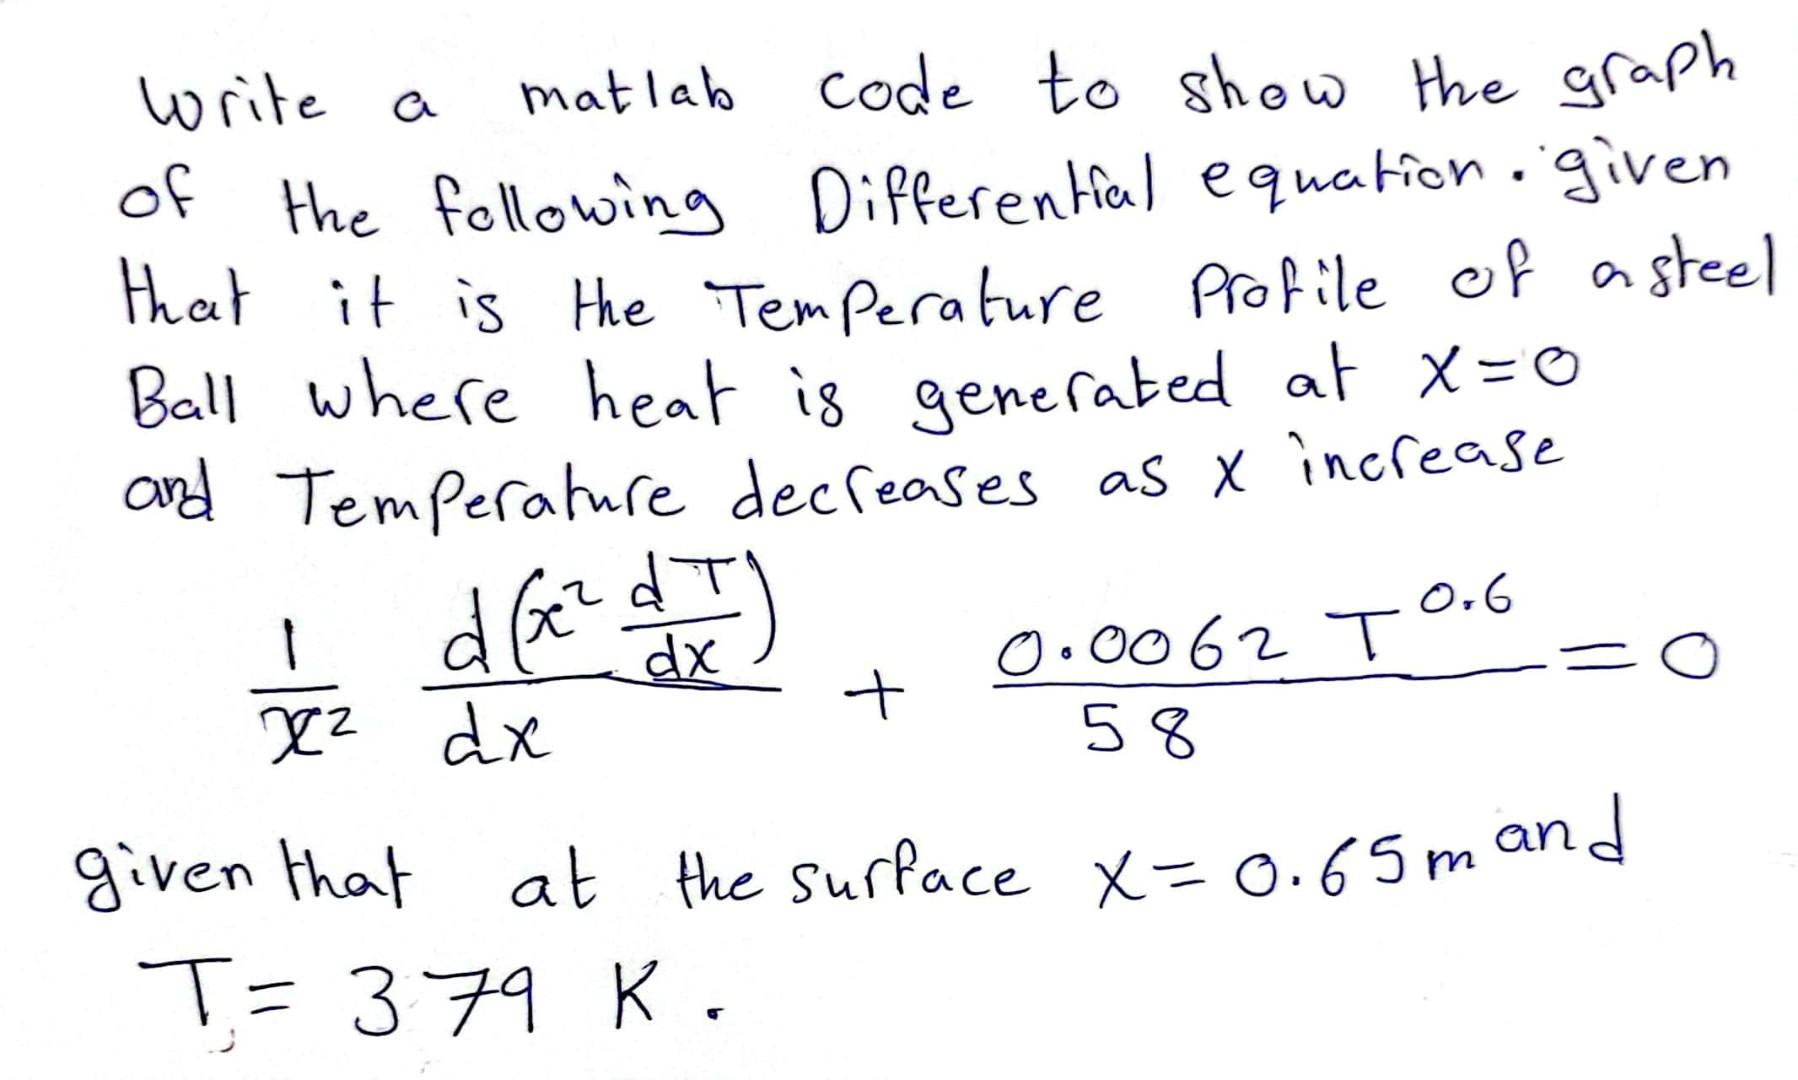 Write a matlab code to show the graph
of the following Differential equation. given
that it is the Temperature Profile of a steel
Ball where heat is generated at X=0
and Temperature decreases as X increase
1/x² d(x² dT/dx)/dx + 0.0062 T^0.6/58 = 0
given that at the surface X=0.65m and
T= 379 K.